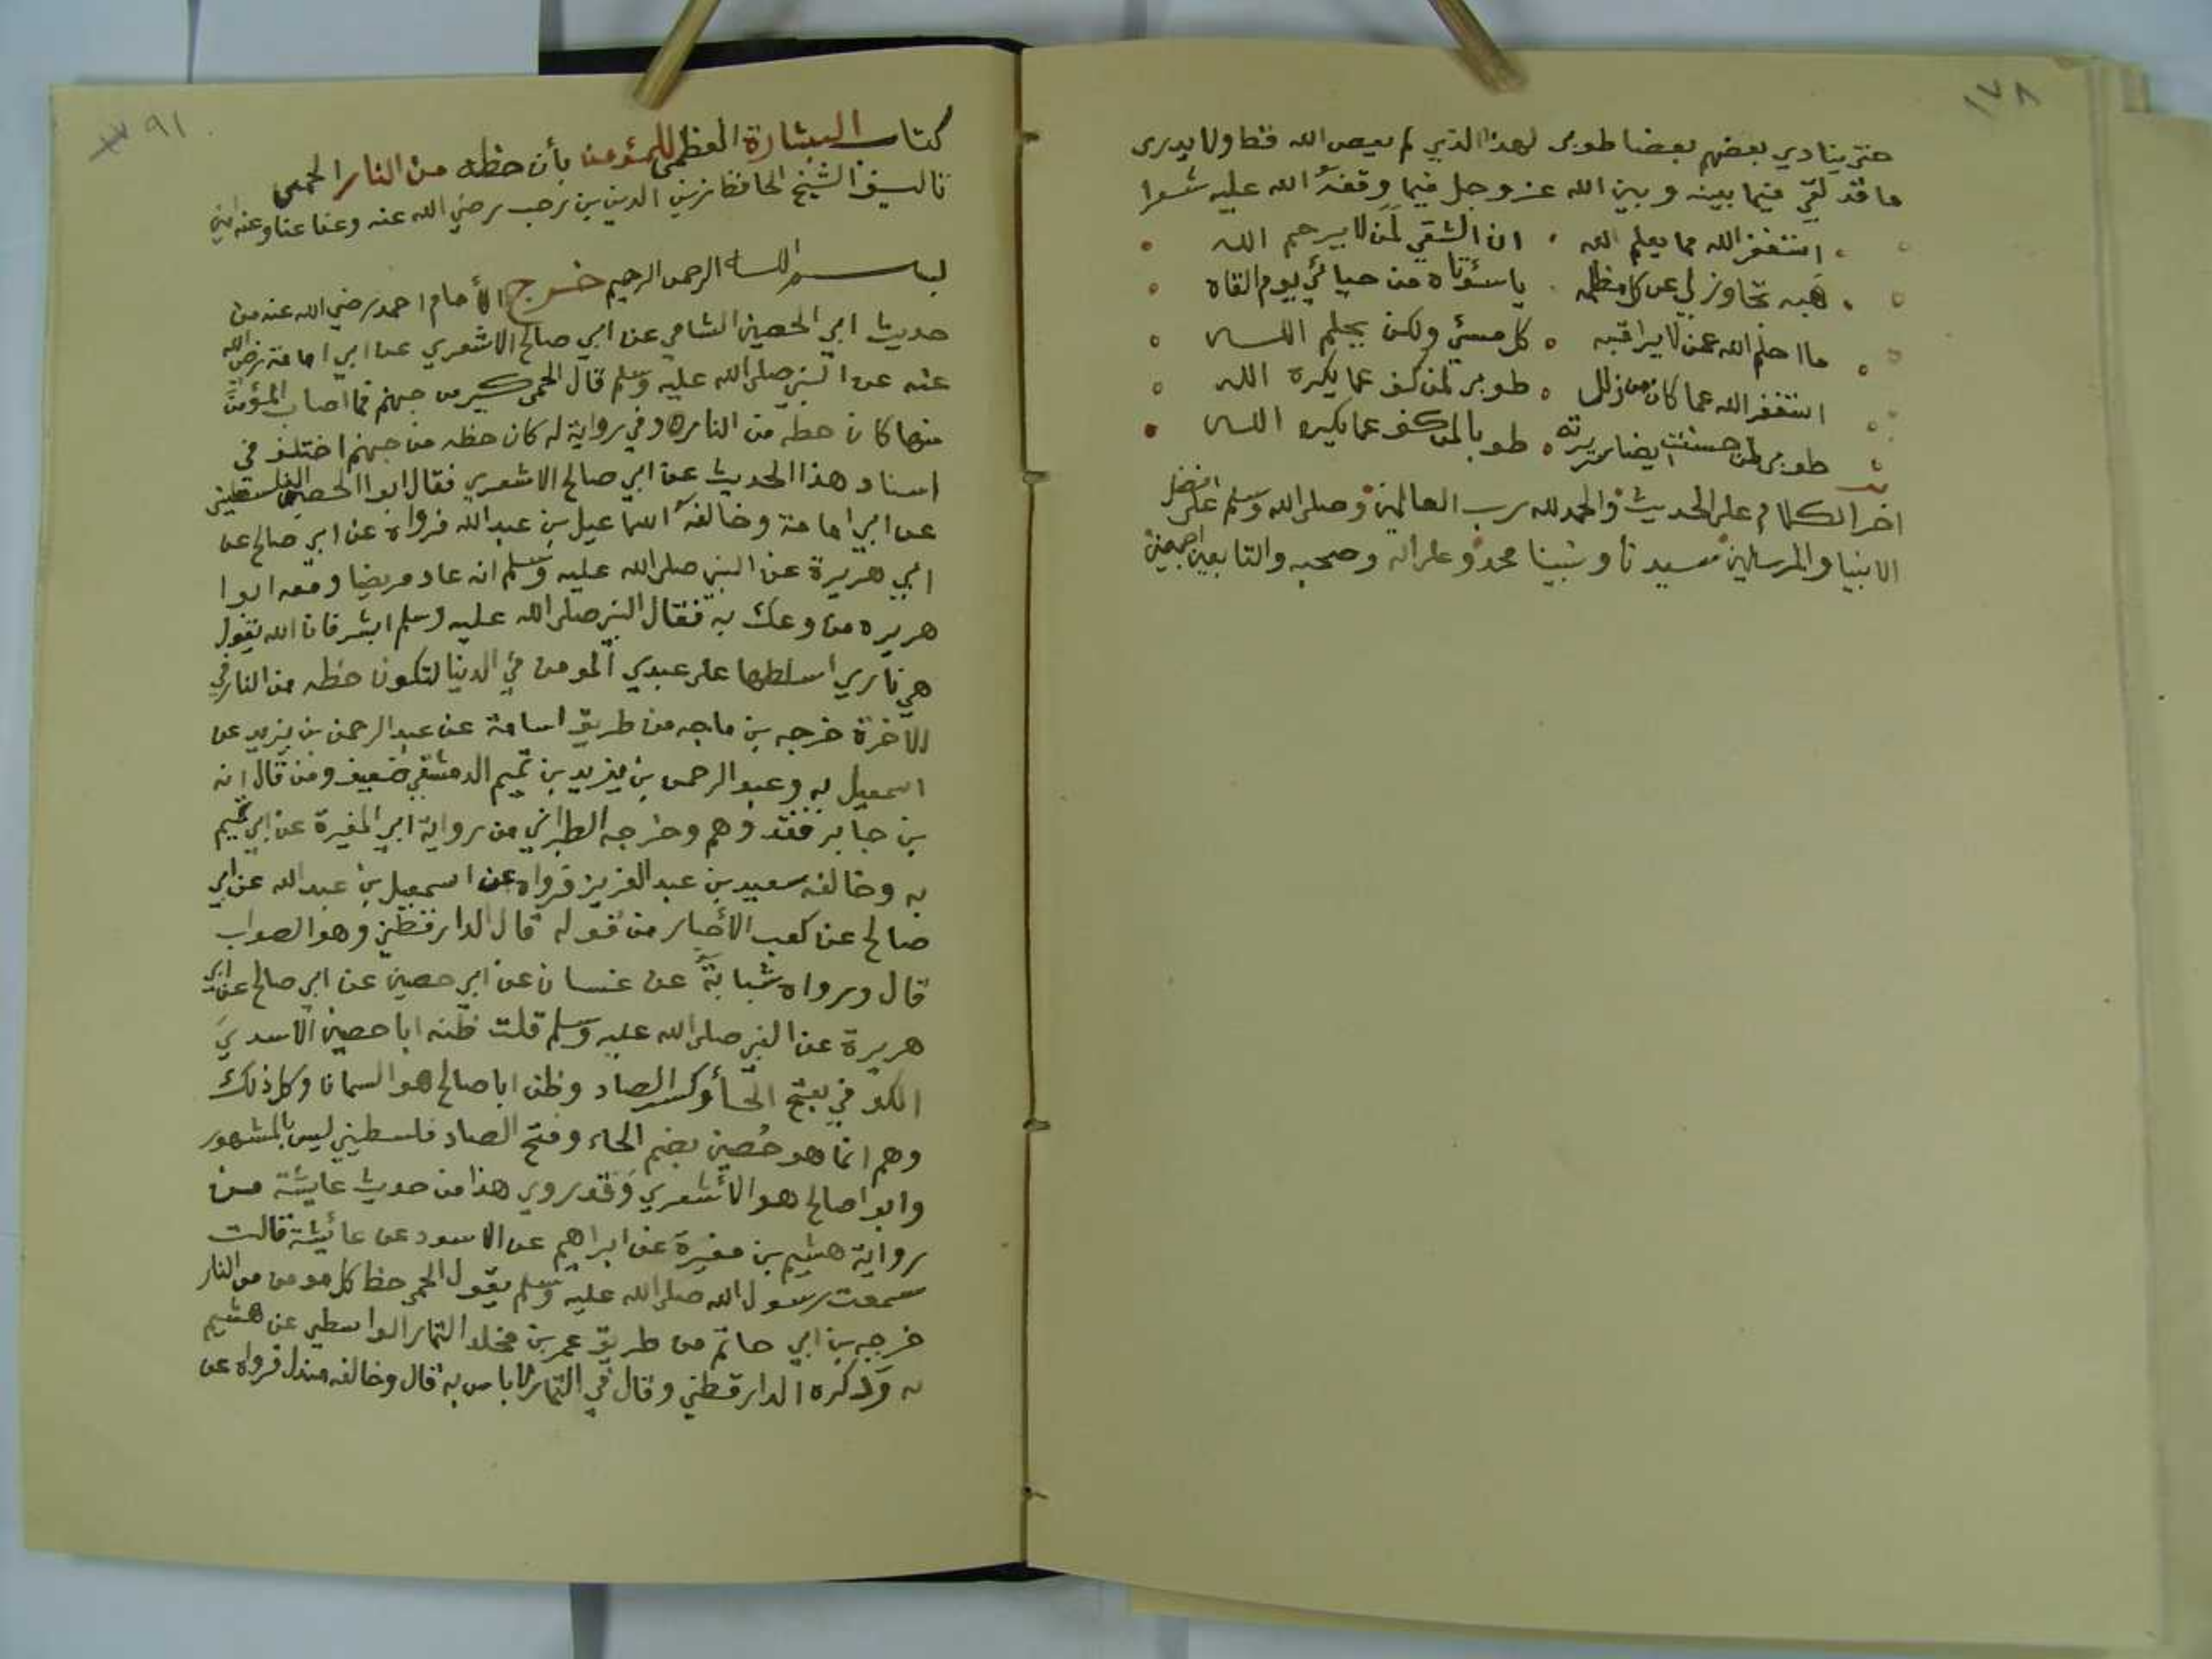 ١٧٨
حتى ينادي بعضهم بعضا طوبى لهذا الذي لم يعص الله قط ولا يدرى
ما قد لقي فيما بينه وبين الله عز وجل فيما وقفه الله عليه شعرا
استغفر الله مما يعلم الله ان الشقي لمن لا يرحم الله
هبه تجاوز لي عن كل مظلمه ياسؤتاه من حيائي يوم القاه
ما احلم الله عمن لا يراقبه كل مسئ ولكن يحلم الله
استغفر الله عما كان من زلل طوبى لمن كف عما يكره الله
طوبى لمن حسنت سريرته طوبا لمن كف عما يكره الله
اخر الكلام على الحديث والحمد لله رب العالمين وصلى الله وسلم على افضل
الانبيا والمرسلين سيدنا ونبينا محمد وعلى اله وصحبه والتابعين اجمعين
٩١
كتاب البشارة العظمى للمؤمن بأن حظه من النار الحمى
تاليف الشيخ الحافظ زين الدين بن رجب رضي الله عنه وعنا وعنه امين
بسم الله الرحمن الرحيم خرج الأمام احمد رضي الله عنه من
حديث ابي الحصين الشامي عن ابي صالح الاشعري عن ابي امامة رضي الله
عنه عن النبي صلى الله عليه وسلم قال الحمى كير من جهنم فما اصاب المؤمن
منها كان حظه من النار وفي رواية له كان حظه من جهنم اختلف في
اسناد هذا الحديث عن ابي صالح الاشعري فقال ابوا الحصين الفلسطيني
عن ابي امامة وخالفه اسماعيل بن عبد الله فرواه عن ابي صالح عن
ابي هريرة عن النبي صلى الله عليه وسلم انه عاد مريضا ومعه ابوا
هريره من وعك به فقال النبي صلى الله عليه وسلم ابشر فان الله يقول
هي ناري اسلطها على عبدي المومن في الدنيا لتكون حظه من النار في
الآخرة خرجه بن ماجه من طريق اسامة عن عبد الرحمن بن يزيد عن
اسمعيل به وعبد الرحمن بن يزيد بن تميم الدمشقي ضعيف ومن قال انه
بن جابر فقد وهم وخرجه الطبراني من رواية ابي المغيرة عن ابي تميم
به وخالفه سعيد بن عبد العزيز فرواه عن اسمعيل بن عبد الله عن ابي
صالح عن كعب الأحبار من قوله قال الدارقطني وهو الصواب
قال ورواه شبابة عن غسان عن ابي حصين عن ابي صالح عن ابي
هريرة عن النبي صلى الله عليه وسلم قلت ظنه ابا حصين الاسدي
الكوفي بفتح الحأ وكسر الصاد وظن ابا صالح هو السمانا وكل ذلك
وهم انما هو حُصين بضم الحاء وفتح الصاد فلسطيني ليس بالمشهور
وابوا صالح هو الأشعري وقد روي هذا من حديث عايشة من
رواية هشيم بن مغيرة عن ابراهيم عن الاسود عن عائشة قالت
سمعت رسول الله صلى الله عليه وسلم يقول الحمى حظ كل مومن من النار
خرجه بن ابي حاتم من طريق عمر بن مخلد التمار الواسطي عن هشيم
به وذكره الدارقطني وقال في التمار لا باس به قال وخالفه مندل فرواه عن